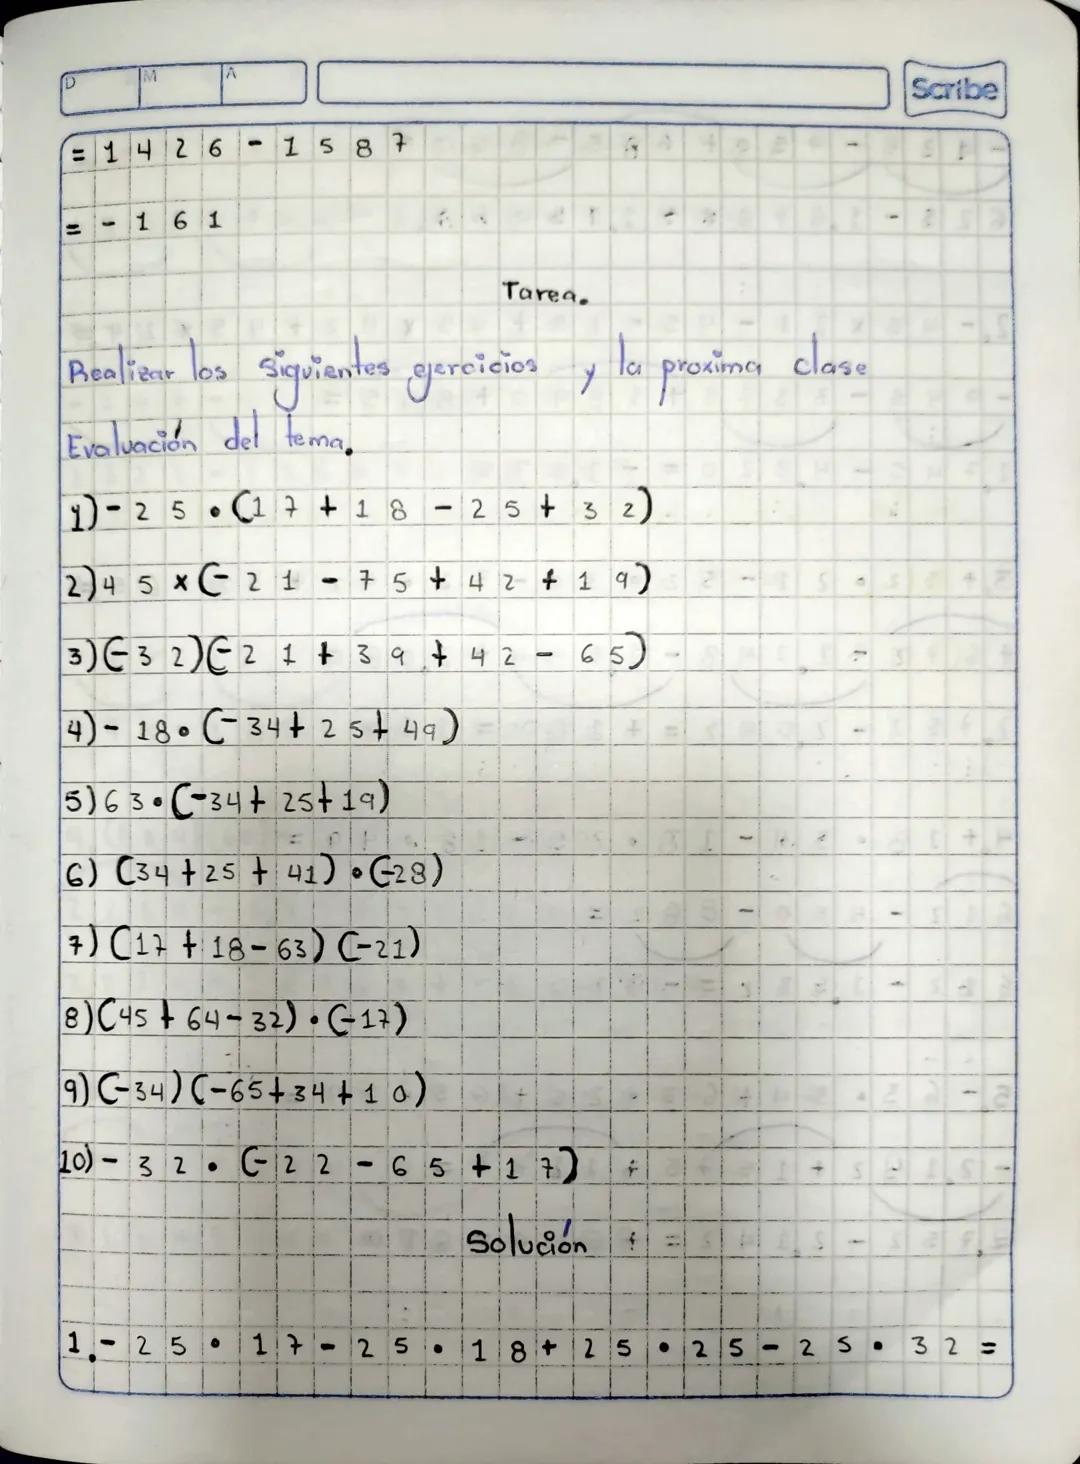 D M A
Scribe
= 1 4 2 6 - 1 5 8 7
= - 1 6 1
Tarea.
Realizar los siguientes ejercicios y la proxima clase
Evaluación del tema.
1) - 2 5 • (1 7 + 1 8 - 2 5 + 3 2)
2) 4 5 x (- 2 1 - 7 5 + 4 2 + 1 9)
3) (- 3 2) (- 2 1 + 3 9 + 4 2 - 6 5)
4) - 18 • (- 34 + 25 + 49)
5) 63 • (-34 + 25 + 19)
6) (34 + 25 + 41) • (-28)
7) (17 + 18 - 63) (-21)
8) (45 + 64 - 32) • (-17)
9) (-34) (-65 + 34 + 1 0)
10) - 3 2 • (- 2 2 - 6 5 + 1 7)
Solución
1. - 2 5 • 1 7 - 2 5 • 1 8 + 2 5 • 2 5 - 2 5 • 3 2 =